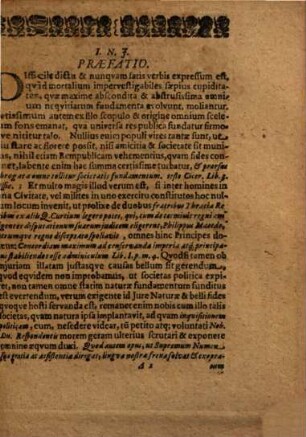 I. N. J.
PRÆFATIO.
Difficile dictu & nunquam satis verbis expressum est,
quid mortalium impervestigabiles sæpius cupidita-
tes, quæ maxime abscondita & abstrusissima omni-
um nequitiarum fundamenta evolvunt, moliantur.
ex illo scopulo & origine omnium scele-
rum fons emanat, qua universa respublica fundatur firmo-
ve nititur talo. Nullius enim populi vires tantæ sunt, ut
stare ac florere possit, nisi amicitia & societate sit muni-
tus, nihil etiam Rempublicam vehementius, quam fides con-
net, labente enim hac summa certissime turbatur, & præsens
tollitur societatis fundamentum. teste Cicer. Lib. 3.
Et multo magis illod verum est, si inter homines in
na Civitate, vel milites in uno exercitu constitutos hoc nul-
lum locum invenit, ut prolixe de duobus fratribus
Curtium legere potes, qui,
disputationum
regno discrepare
omnes hinc Principes do-
cuit: Concordiam maximum ad conservanda imperia
stabiliendos esse adminiculum Lib. I. p. m. 4. Quodsi tamen ob
njuriam illatam justasque causas bellum sit gerendum,
quod equidem non improbamus, at societas politica expi-
et, non tamen omne statim natura fundamentum funditus
est evertendum, verum exigente id Jure Naturæ & belli fides
quoque hosti servanda est, remanet enim nobis cum illo talis
societas, quam natura ipsa implantavit, ad quam inquisitionem
politicam, cum, ne sede videar, τὸ petito atq; voluntati Nob.
Dn. Respondentis morem geram ulterius scrutari & exponere
omnine æqvum duxi. Quod autem opus, ut Supremum Numen
gratia ac assistentia dirigat, lingua nostra frena solvat & expra-
A 2